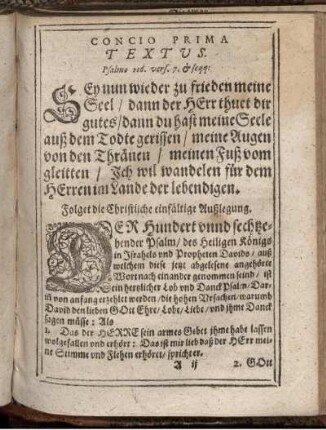 CONCIO PRIMA
TEXTUS.
Psalmo 116. vers. 7. & seqq:
SEy nun wieder zu frieden meine
Seel / dann der HErr thuet dir
gutes / dann du hast meine Seele
auß dem Todte gerissen / meine Augen
von den Thränen / meinen Fuß vom
gleitten / Jch wil wandelen für dem
HErren im Lande der lebendigen.
Folget die Christliche einfältige Außlegung.
DER Hundert vnnd sechtze-
hender Psalm / des Heiligen Königs
in Israhels vnd Propheten Davids / auß
welchem diese jetz abgelesene angehörte
Wort nach einander genommen seind / ist
ein herrlicher Lob vnd Danck Psalm / Dar-
in von anfang erzehlet werden / die hohen Vrsachen / warumb
David den lieben GOtt Ehre / Lobe / Liebe / vnd jhme Danck
sagen müsse : Als
1. Das der HERRE sein armes Gebet jhme habe lassen
wolgefallen vnd erhört : Das ist mir lieb daß der HErr mei-
ne Stimme vnd Flehen erhöret / spricht er.
A ij 2. GOtt